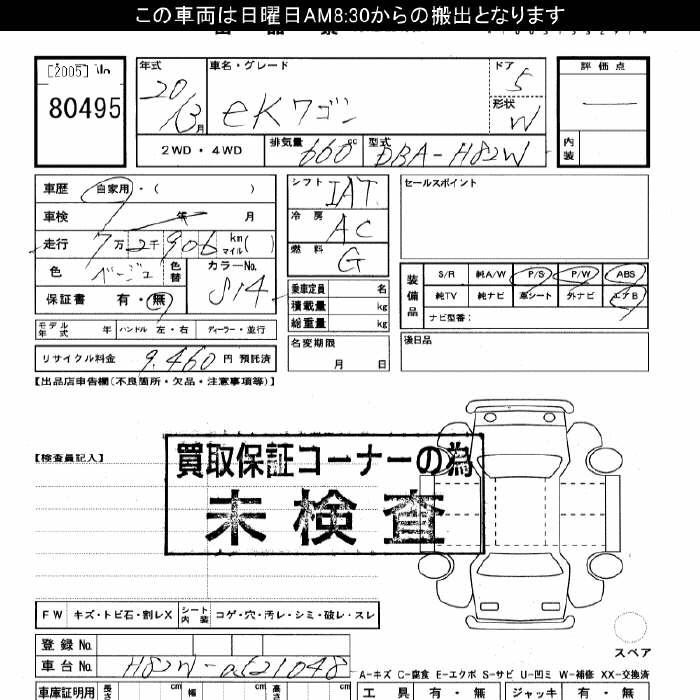 この車両は日曜日AM8:30からの搬出となります
[2005] No 年式 車名・グレード ドア 評価点
80495 20/3月 eKワゴン 5
形状 W
2WD・4WD 排気量 660cc 型式 DBA-H82W 内装
車歴 自家用・( )
シフト IAT セールスポイント
車検 年 月
冷房 AC
走行 7万2千906 km マイル( )
燃料 G
色 ベージュ 色替 カラーNo. S14
装備品 S/R 純A/W P/S P/W ABS
保証書 有・無
乗車定員 名
純TV 純ナビ 革シート 外ナビ エアB
積載量 kg
ナビ型番:
総重量 kg
モデル年式 年 ハンドル 左・右 ディーラー・並行
名変期限 月 日
後日品
リサイクル料金 9,460円 預託済
【出品店申告欄(不良箇所・欠品・注意事項等)】
【検査員記入】
買取保証コーナーの為
未検査
FW キズ・トビ石・割レX シート内装 コゲ・穴・汚レ・シミ・破レ・スレ
スペア
登録No.
車台No. H82W-
A-キズ C-腐食 E-エクボ S-サビ U-凹ミ W-補修 XX-交換済
車庫証明用 長さ cm 幅 cm 高さ cm
工具 有・無 ジャッキ 有・無